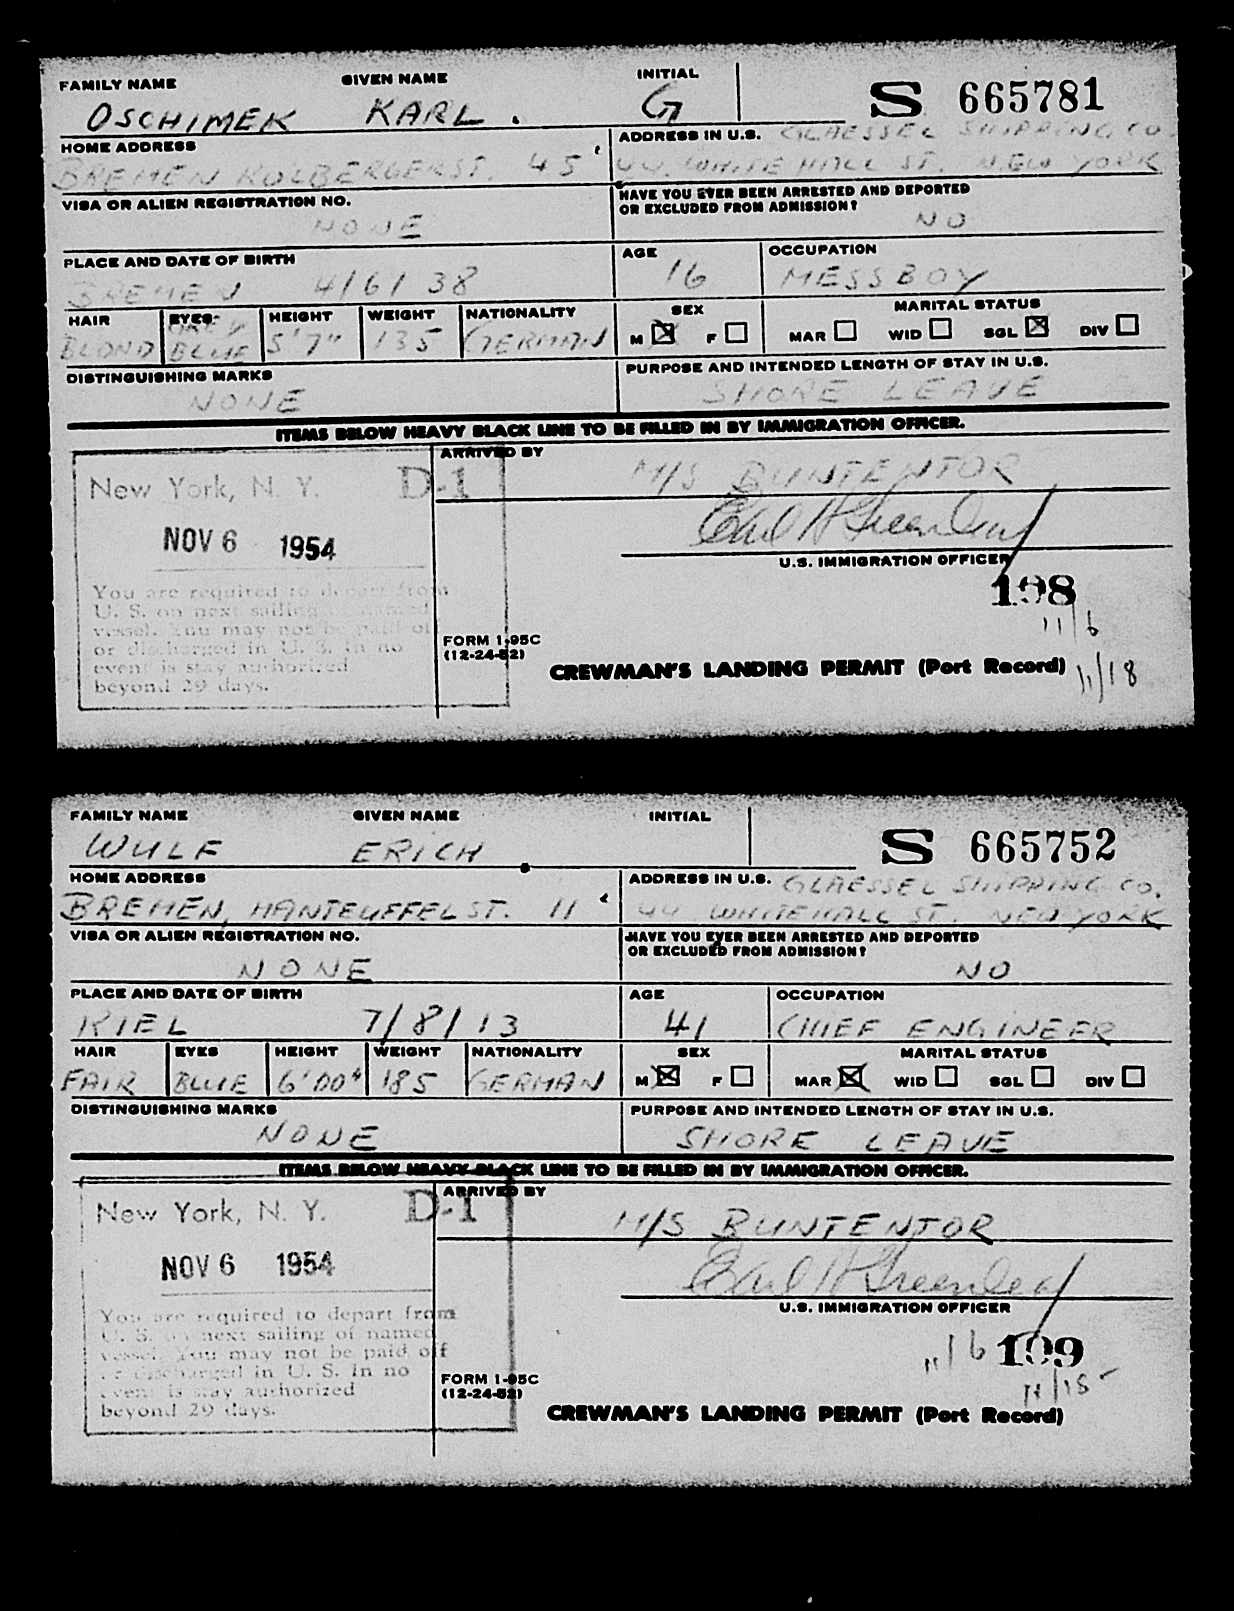 FAMILY NAME GIVEN NAME INITIAL
OSCHIMEK KARL. G S 665781
HOME ADDRESS ADDRESS IN U.S. GLAESSEL SHIPPING CO.
BREMEN KOLBERGERST. 45 44 WHITE HALL ST. NEW YORK
VISA OR ALIEN REGISTRATION NO. HAVE YOU EVER BEEN ARRESTED AND DEPORTED
OR EXCLUDED FROM ADMISSION?
NONE NO
PLACE AND DATE OF BIRTH AGE OCCUPATION
BREMEN 4/6/38 16 MESSBOY
HAIR EYES HEIGHT WEIGHT NATIONALITY SEX MARITAL STATUS
GREY
BLOND BLUE 5'7" 135 GERMAN M F MAR WID SGL DIV
DISTINGUISHING MARKS PURPOSE AND INTENDED LENGTH OF STAY IN U.S.
NONE SHORE LEAVE
ITEMS BELOW HEAVY BLACK LINE TO BE FILLED IN BY IMMIGRATION OFFICER.
ARRIVED BY
New York, N. Y. D-1 M/S BUNTENTOR
NOV 6 1954 Earl H Greenleaf
U.S. IMMIGRATION OFFICER
You are required to depart from
U. S. on next sailing of named
vessel. You may not be paid off
or discharged in U. S. In no
event is stay authorized
beyond 29 days.
198
11/6
FORM I-95C
(12-24-52)
CREWMAN'S LANDING PERMIT (Port Record) 11/18
FAMILY NAME GIVEN NAME INITIAL
WULF ERICH S 665752
HOME ADDRESS ADDRESS IN U.S. GLAESSEL SHIPPING CO.
BREMEN, MANTEUFFELST. 11 44 WHITEHALL ST. NEW YORK
VISA OR ALIEN REGISTRATION NO. HAVE YOU EVER BEEN ARRESTED AND DEPORTED
OR EXCLUDED FROM ADMISSION?
NONE NO
PLACE AND DATE OF BIRTH AGE OCCUPATION
KIEL 7/8/13 41 CHIEF ENGINEER
HAIR EYES HEIGHT WEIGHT NATIONALITY SEX MARITAL STATUS
FAIR BLUE 6'00" 185 GERMAN M F MAR WID SGL DIV
DISTINGUISHING MARKS PURPOSE AND INTENDED LENGTH OF STAY IN U.S.
NONE SHORE LEAVE
ITEMS BELOW HEAVY BLACK LINE TO BE FILLED IN BY IMMIGRATION OFFICER.
ARRIVED BY
New York, N. Y. D-1 M/S BUNTENTOR
NOV 6 1954 Earl H Greenleaf
U.S. IMMIGRATION OFFICER
You are required to depart from
U. S. on next sailing of named
vessel. You may not be paid off
or discharged in U. S. In no
event is stay authorized
beyond 29 days.
11/6 199
11/18
FORM I-95C
(12-24-52)
CREWMAN'S LANDING PERMIT (Port Record)